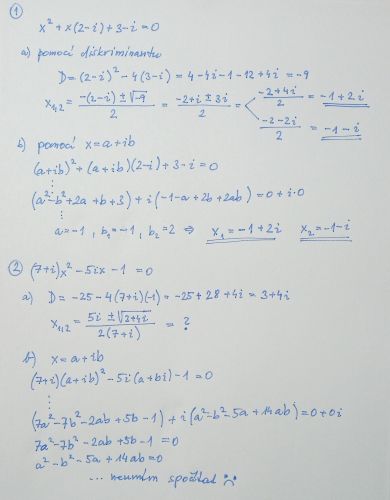 ① x² + x(2-i) + 3-i = 0
a) pomocí diskriminantu
D = (2-i)² - 4(3-i) = 4-4i-1-12+4i = -9
x₁,₂ = (-(2-i) ± √-9)/2 = (-2+i ± 3i)/2 < (-2+4i)/2 = -1+2i
(-2-2i)/2 = -1-i
b) pomocí x = a+ib
(a+ib)² + (a+ib)(2-i) + 3-i = 0
⋮
(a²-b²+2a+b+3) + i(-1-a+2b+2ab) = 0+i·0
⋮
a=-1, b₁=-1, b₂=2 ⇒ x₁ = -1+2i x₂ = -1-i
② (7+i)x² - 5ix - 1 = 0
a) D = -25-4(7+i)(-1) = -25+28+4i = 3+4i
x₁,₂ = (5i ± √3+4i)/(2(7+i)) = ?
b) x = a+ib
(7+i)(a+ib)² - 5i(a+bi) - 1 = 0
⋮
(7a²-7b²-2ab+5b-1) + i(a²-b²-5a+14ab) = 0+0i
7a²-7b²-2ab+5b-1 = 0
a²-b²-5a+14ab = 0
... neumím spočítat :-(